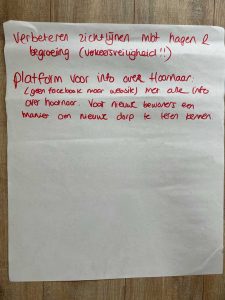 Verbeteren zichtlijnen mbt hagen &
begroeing (verkeersveiligheid!!)
Platform voor info over Hoornaar:
(geen facebook maar website) met alle info
over hoornaar. Voor nieuwe bewoners een
manier om nieuwe dorp te leren kennen